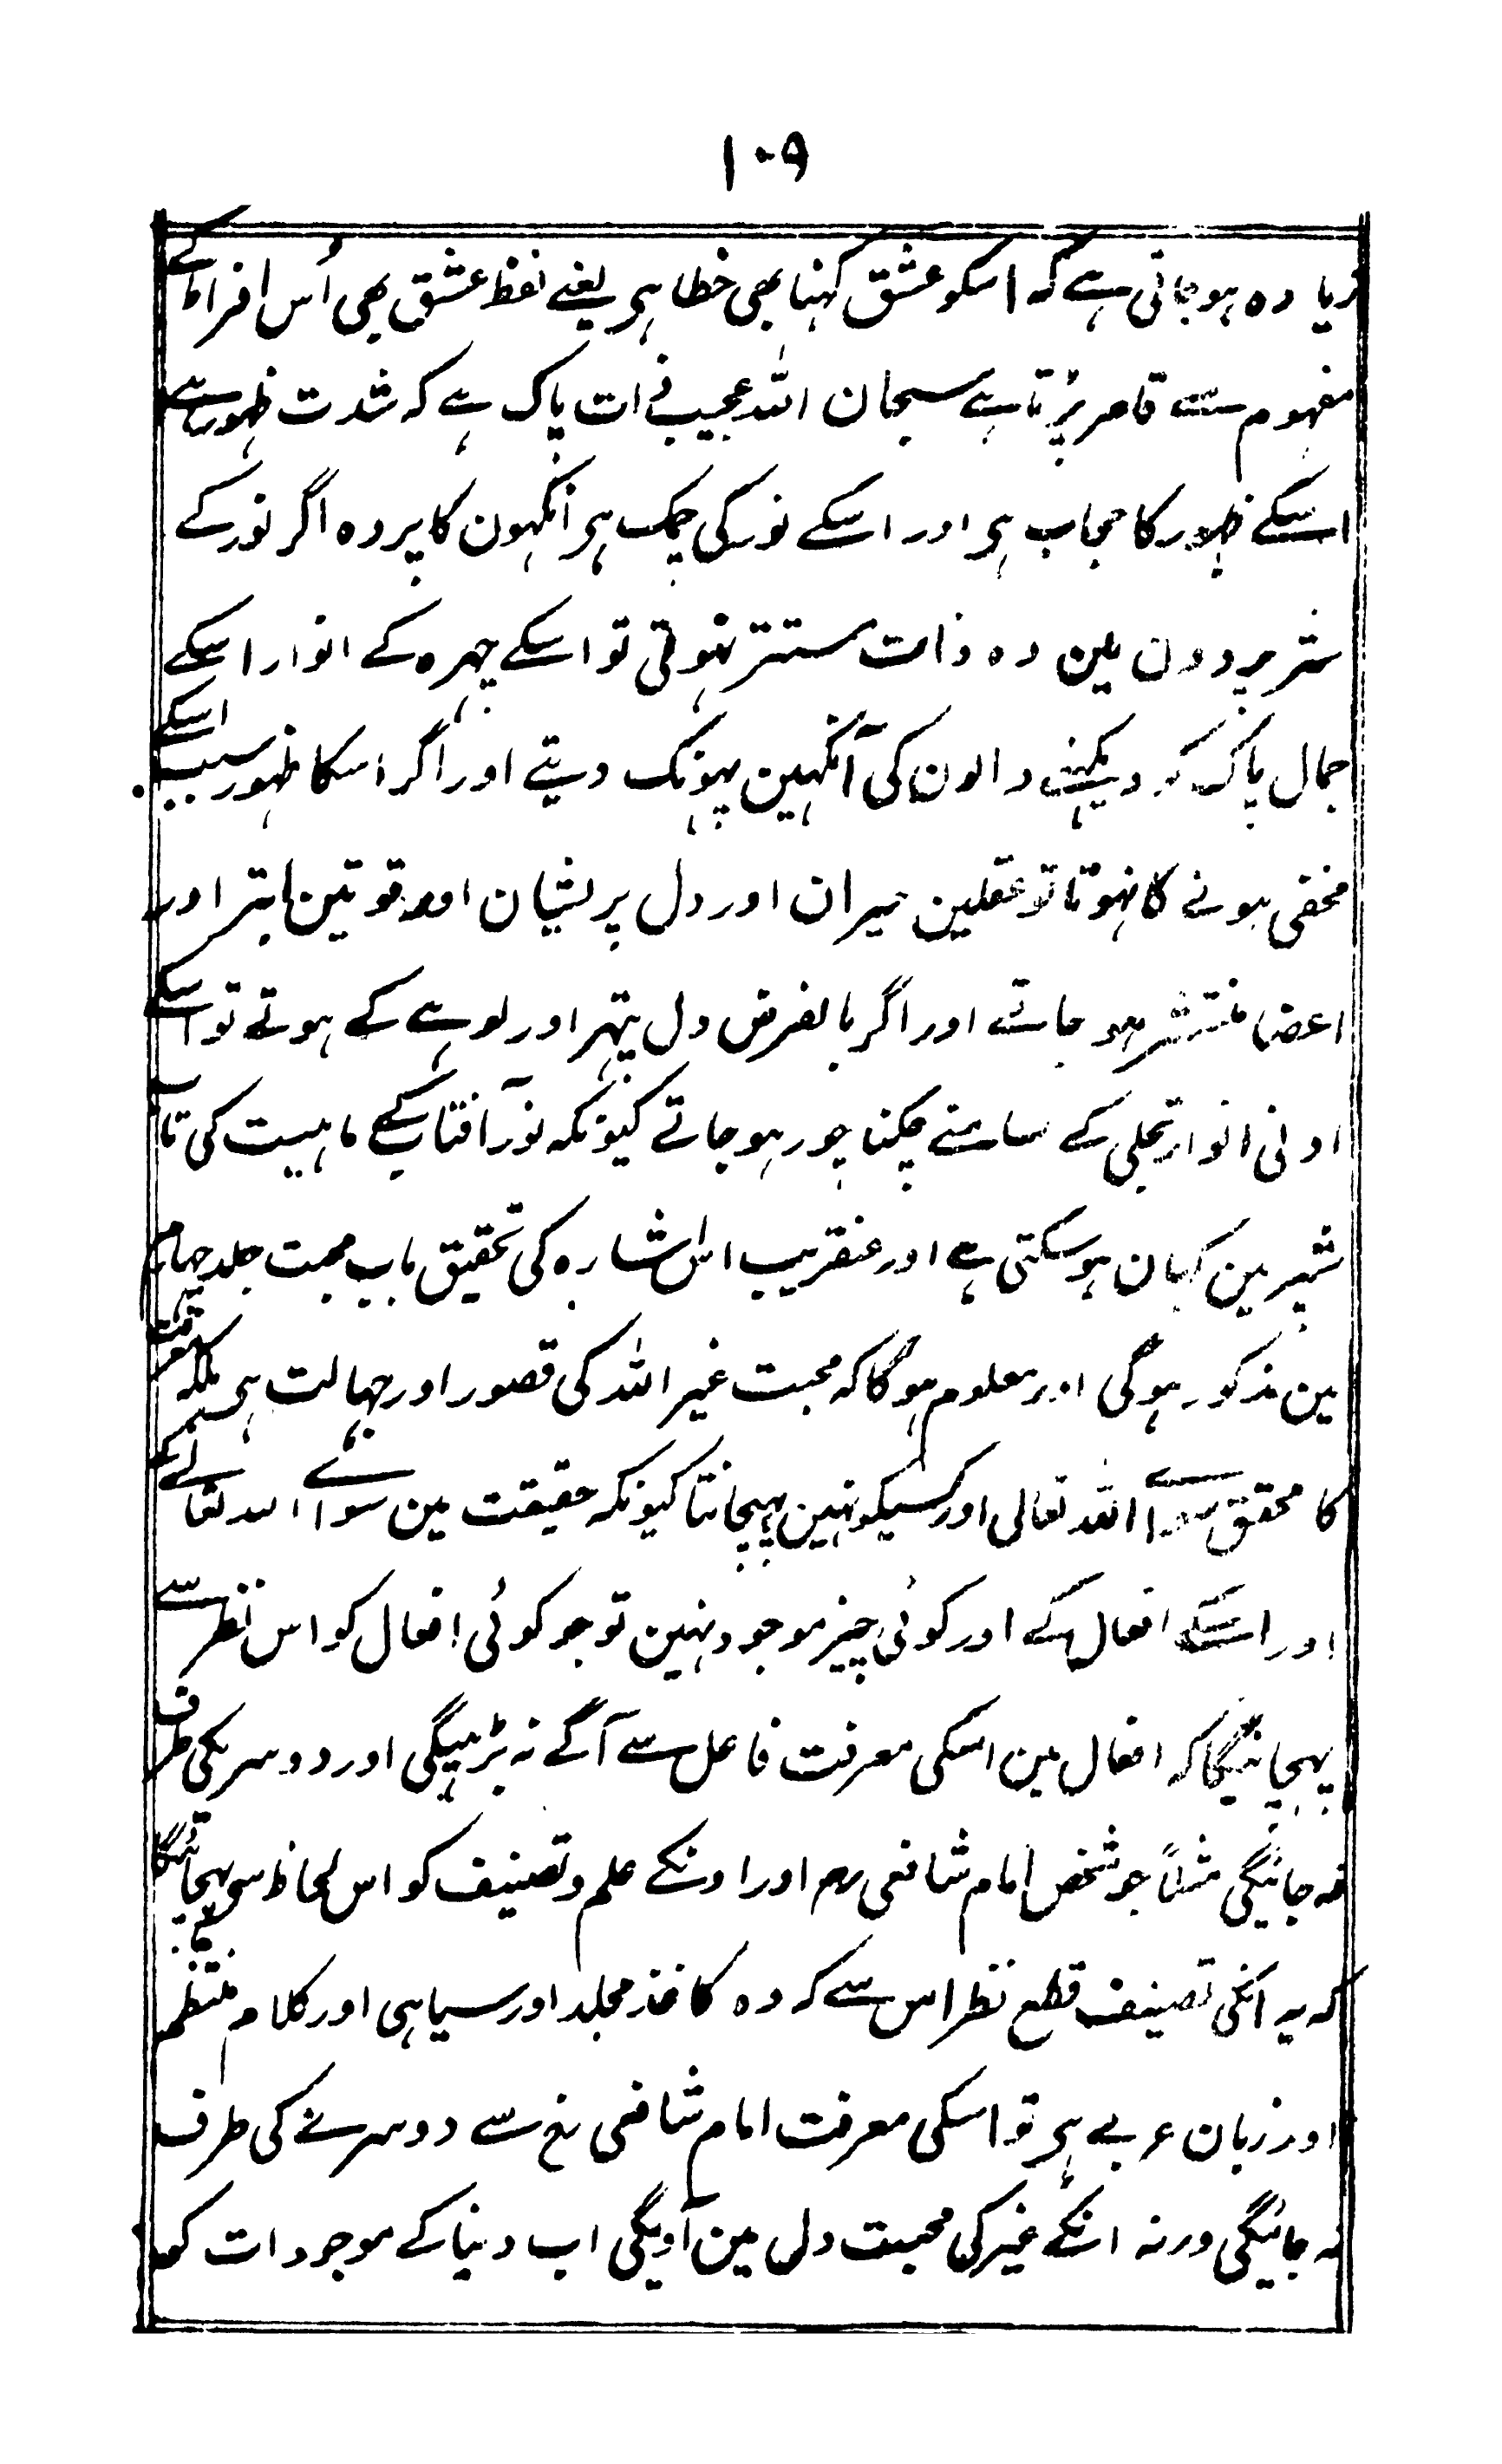 ۱۰۹
زیادہ ہوجاتی ہے کہ اسکو عشق کہنا بھی خطا ہی یعنے لفظ عشق بھی اُس افراط کے
مفہوم سے قاصر پڑتا ہے سبحان اللہ عجیب ذات پاک ہے کہ شدت ظہور ہے
اسکے ظہور کا حجاب ہی اور اسکے نور کی چمک ہی انکہون کا پردہ اگر نور کے
ستر پردون مین وہ ذات مستتر نہوتی تو اسکے چہرہ کے انوار اسکے
جمال پاک کے دیکہنے والون کی آنکہین پہونک دیتے اور اگر اسکا ظہور سبب اسکے
مخفی ہونے کا نہوتا تو عقلین حیران اور دل پریشان اور قوتین ابتر اور
اعضا منتشر ہو جاتے اور اگر بالفرض دل پتہر اور لوہے کے ہوتے تو اسکے
ادنی انوار تجلی کے سامنے چکنا چور ہو جاتے کیونکہ نور آفتاب کے ماہیت کی تاب
شپر مین کہان ہوسکتی ہے اور عنقریب اس اشارہ کی تحقیق باب محبت جلد چہارم
مین مذکور ہوگی اور معلوم ہوگا کہ محبت غیر اللہ کی قصور اور جہالت ہی بلکہ معرفت
کا محقق سوائے اللہ تعالی اور کسیکو نہین پہچانتا کیونکہ حقیقت مین سوائے اللہ تعالے کے
اور اسکے افعال کے اور کوئی چیز موجود نہین تو جو کوئی افعال کو اس نظر سے
پہچانیگا کہ افعال ہین اسکی معرفت فاعل سے آگے نہ بڑہیگی اور دوسریکی طرف
نہ جائیگی مثلاً جو شخص امام شافعی رح اور اونکے علم وتصنیف کو اس لحاظ سی پہچانیگا
کہ یہ انکی تصنیف قطع نظر اس سے کہ وہ کاغذ مجلد اور سیاہی اور کلام منتظم
اور زبان عربے ہی تو اسکی معرفت امام شافعی رح سے دوسرے کی طرف
نہ جائیگی ورنہ انکے غیر کی محبت دل مین آویگی اب دنیا کے موجودات کو